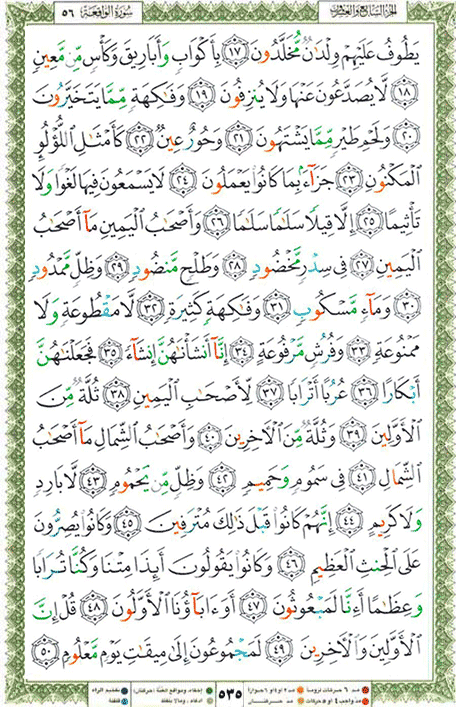 سُورَةُ الوَاقِعَةِ ٥٦
الجُزْءُ السَّابِعُ وَالعِشْرُونَ
يَطُوفُ عَلَيْهِمْ وِلْدَٰنٌ مُّخَلَّدُونَ ١٧ بِأَكْوَابٍ وَأَبَارِيقَ وَكَأْسٍ مِّن مَّعِينٍ
١٨ لَّا يُصَدَّعُونَ عَنْهَا وَلَا يُنزِفُونَ ١٩ وَفَٰكِهَةٍ مِّمَّا يَتَخَيَّرُونَ
٢٠ وَلَحْمِ طَيْرٍ مِّمَّا يَشْتَهُونَ ٢١ وَحُورٌ عِينٌ ٢٢ كَأَمْثَٰلِ اللُّؤْلُؤِ
الْمَكْنُونِ ٢٣ جَزَآءً بِمَا كَانُوا يَعْمَلُونَ ٢٤ لَا يَسْمَعُونَ فِيهَا لَغْوًا وَلَا
تَأْثِيمًا ٢٥ إِلَّا قِيلًا سَلَٰمًا سَلَٰمًا ٢٦ وَأَصْحَٰبُ الْيَمِينِ مَآ أَصْحَٰبُ
الْيَمِينِ ٢٧ فِي سِدْرٍ مَّخْضُودٍ ٢٨ وَطَلْحٍ مَّنضُودٍ ٢٩ وَظِلٍّ مَّمْدُودٍ
٣٠ وَمَآءٍ مَّسْكُوبٍ ٣١ وَفَٰكِهَةٍ كَثِيرَةٍ ٣٢ لَّا مَقْطُوعَةٍ وَلَا
مَمْنُوعَةٍ ٣٣ وَفُرُشٍ مَّرْفُوعَةٍ ٣٤ إِنَّآ أَنشَأْنَٰهُنَّ إِنشَآءً ٣٥ فَجَعَلْنَٰهُنَّ
أَبْكَارًا ٣٦ عُرُبًا أَتْرَابًا ٣٧ لِّأَصْحَٰبِ الْيَمِينِ ٣٨ ثُلَّةٌ مِّنَ
الْأَوَّلِينَ ٣٩ وَثُلَّةٌ مِّنَ الْآخِرِينَ ٤٠ وَأَصْحَٰبُ الشِّمَالِ مَآ أَصْحَٰبُ
الشِّمَالِ ٤١ فِي سَمُومٍ وَحَمِيمٍ ٤٢ وَظِلٍّ مِّن يَحْمُومٍ ٤٣ لَّا بَارِدٍ
وَلَا كَرِيمٍ ٤٤ إِنَّهُمْ كَانُوا قَبْلَ ذَٰلِكَ مُتْرَفِينَ ٤٥ وَكَانُوا يُصِرُّونَ
عَلَى الْحِنثِ الْعَظِيمِ ٤٦ وَكَانُوا يَقُولُونَ أَئِذَا مِتْنَا وَكُنَّا تُرَابًا
وَعِظَٰمًا أَءِنَّا لَمَبْعُوثُونَ ٤٧ أَوَءَابَآؤُنَا الْأَوَّلُونَ ٤٨ قُلْ إِنَّ
الْأَوَّلِينَ وَالْآخِرِينَ ٤٩ لَمَجْمُوعُونَ إِلَىٰ مِيقَٰتِ يَوْمٍ مَّعْلُومٍ ٥٠
٥٣٥